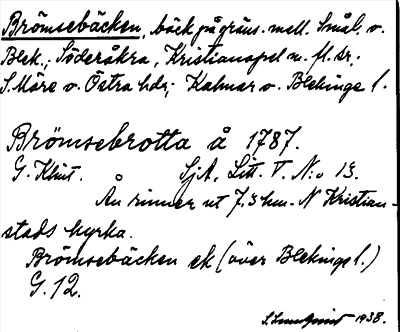 Brömsebäcken, bäck på gräns. mell. Smål. o.
Blek.; Söderåkra, Kristianopel m. fl. sr.
S. Möre o. Östra hdr; Kalmar o. Blekinge l.
Brömsebrotta å 1787.
G. Klint. SjA, Litt. V. N:o 13.
Ån rinner ut 7.3 hm. N Kristian-
stads kyrka.
Brömsebäcken ek (över Blekinge l.)
G. 12.
S. Lundquist 1938.